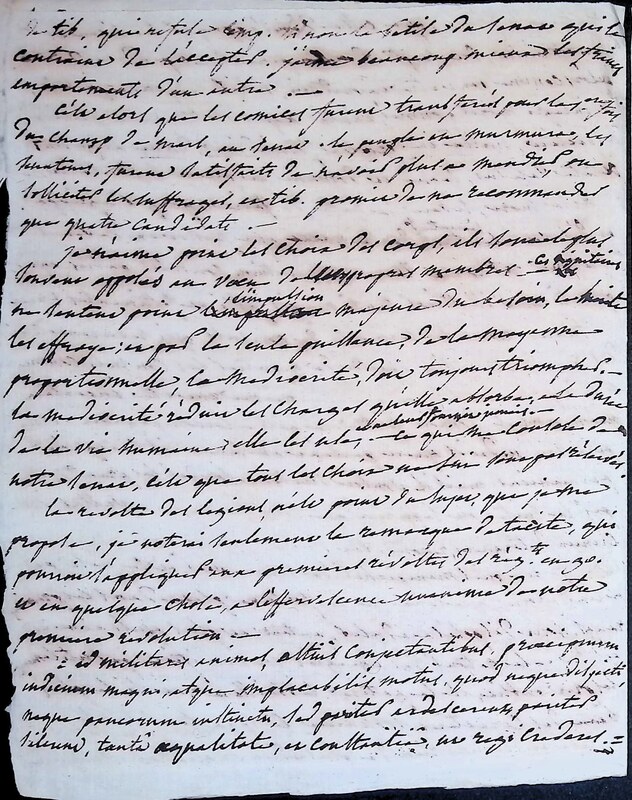 de tib. qui refuse l'emp. et non le style du senat qui le
contraint de l'accepter. j'aime beaucoup mieux les francs
emportements d'un autre. —
c'est alors que les comices furent transférés pour la
du champ de mars, au senat. le peuple en murmura, les
senateurs, furent satisfaits de n'avoir plus a mendier ou
solliciter les suffrages, et tib. promit de ne recommander
que quatre candidats. —
je n'aime point les choix des corps, ils sont le plus
souvent opposés au vœu de propres membres — 
ne sentent point l'impulsion majeure du besoin, le
les effraye; et par la seule puissance, de la moyenne
proportionnelle, la médiocrité, doit toujours triompher. —
la médiocrité réduit les charges qu'elle absorbe, a la durée
de la vie humaine; elle les use, — ce qui me console de
notre senat, c'est que tous les choix ne lui sont pas réservés.
la révolte des légions, n'est point du sujet que je me
propose, je noterai seulement la remarque de tacite, qui
pourroit s'appliquer aux premieres révoltes des rég.ts en 90.
et en quelque chose, a l'effervescence unanime de notre
premiere révolution —
= id militares animos, altius conjectantibus, præcipuum
indicium magni, atque implacabilis motus, quod neque disjecti,
neque paucorum instinctu, sed pariter ardescerent, pariter
silerent, tantâ æqualitate, et constantiâ, ut regi crederes. =